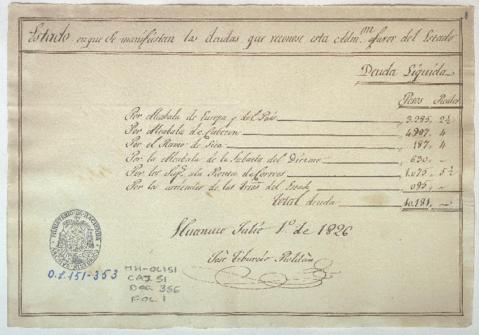 Estado en que se manifiestan las deudas que reconose esta Adm.on afavor del Estado
Deuda Liquida
Pesos Reales
Por Alcabala de Europa y del Pais 3.285, 2½
Por Alcabala de Cabezon 4.907, 4
Por el Ramo de 187, 4
Por la Alcabala de la Subasta del Diezmo 630, "
Por los ala Renta de Correos 1.075, 5½
Por la de las del Estado 095, "
Total deuda 10.181, "
Huanuco Julio 1º de 1826
José Tiburcio Roldán
MINISTERIO DE HACIENDA
O.L. 151-353
MH-OL151
CAJ. 51
DOC. 356
FOL. 1